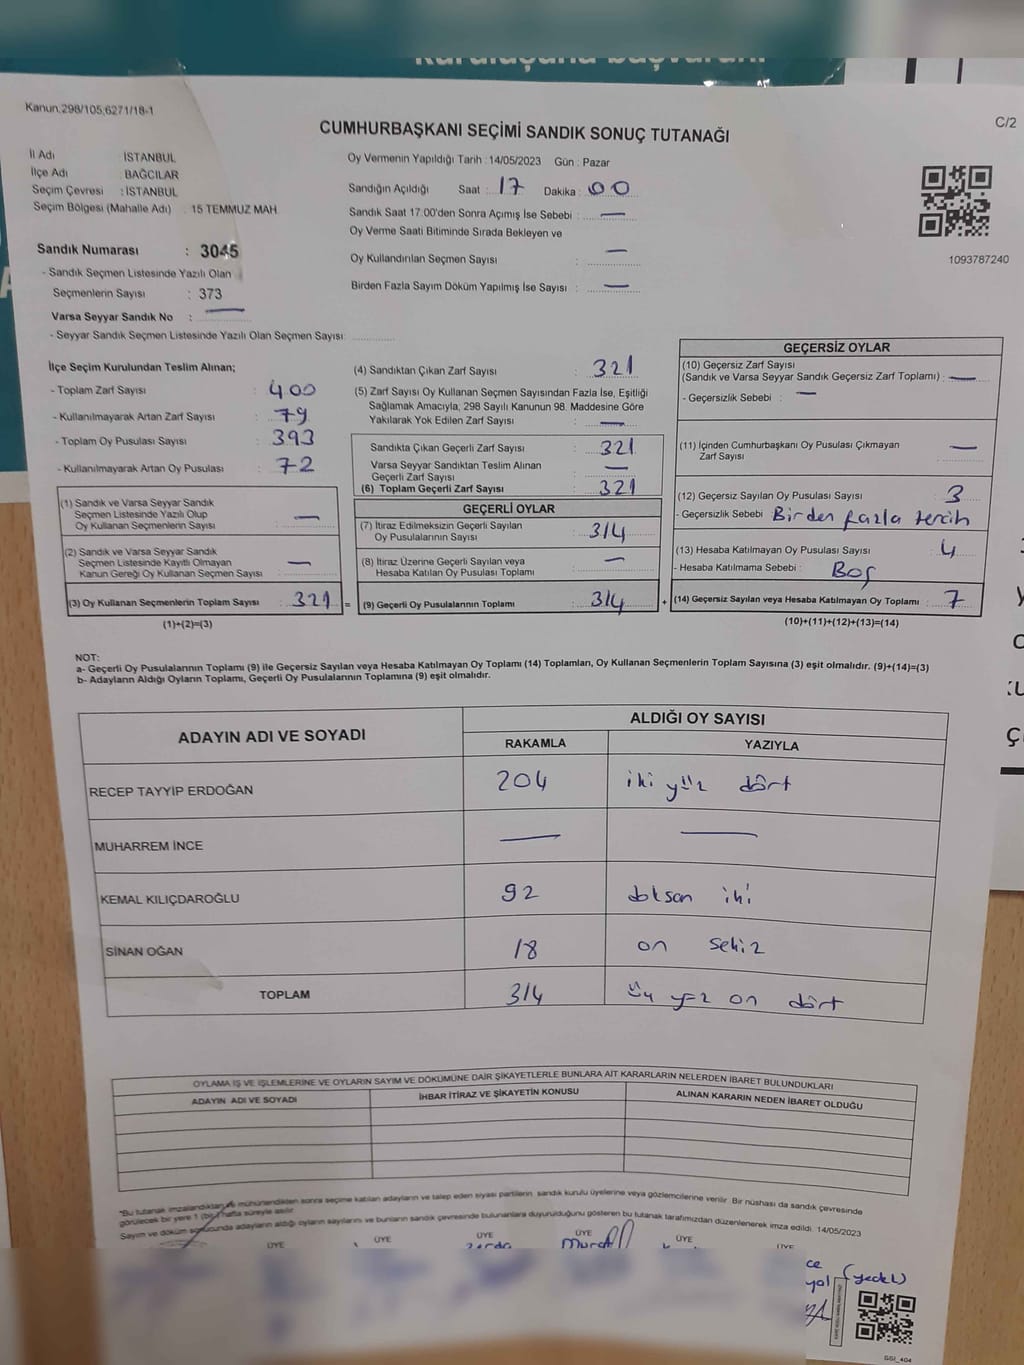 Kanun:298/105;6271/18-1
C/2
CUMHURBAŞKANI SEÇİMİ SANDIK SONUÇ TUTANAĞI
İl Adı : İSTANBUL
İlçe Adı : BAĞCILAR
Seçim Çevresi : İSTANBUL
Seçim Bölgesi (Mahalle Adı) : 15 TEMMUZ MAH
Sandık Numarası : 3045
- Sandık Seçmen Listesinde Yazılı Olan
Seçmenlerin Sayısı : 373
Varsa Seyyar Sandık No : —
- Seyyar Sandık Seçmen Listesinde Yazılı Olan Seçmen Sayısı:
Oy Vermenin Yapıldığı Tarih : 14/05/2023 Gün : Pazar
Sandığın Açıldığı Saat : 17 Dakika : 00
Sandık Saat 17:00'den Sonra Açımış İse Sebebi : —
Oy Verme Saati Bitiminde Sırada Bekleyen ve
Oy Kullandırılan Seçmen Sayısı : —
Birden Fazla Sayım Döküm Yapılmış İse Sayısı : —
1093787240
İlçe Seçim Kurulundan Teslim Alınan;
- Toplam Zarf Sayısı : 400
- Kullanılmayarak Artan Zarf Sayısı : 79
- Toplam Oy Pusulası Sayısı : 393
- Kullanılmayarak Artan Oy Pusulası : 72
(1) Sandık ve Varsa Seyyar Sandık
Seçmen Listesinde Yazılı Olup
Oy Kullanan Seçmenlerin Sayısı : —
(2) Sandık ve Varsa Seyyar Sandık
Seçmen Listesinde Kayıtlı Olmayan
Kanun Gereği Oy Kullanan Seçmen Sayısı : —
(3) Oy Kullanan Seçmenlerin Toplam Sayısı : 321 =
(1)+(2)=(3)
(4) Sandıktan Çıkan Zarf Sayısı : 321
(5) Zarf Sayısı Oy Kullanan Seçmen Sayısından Fazla İse, Eşitliği
Sağlamak Amacıyla; 298 Sayılı Kanunun 98. Maddesine Göre
Yakılarak Yok Edilen Zarf Sayısı : —
Sandıkta Çıkan Geçerli Zarf Sayısı : 321
Varsa Seyyar Sandıktan Teslim Alınan
Geçerli Zarf Sayısı : —
(6) Toplam Geçerli Zarf Sayısı : 321
GEÇERLİ OYLAR
(7) İtiraz Edilmeksizin Geçerli Sayılan
Oy Pusulalarının Sayısı : 314
(8) İtiraz Üzerine Geçerli Sayılan veya
Hesaba Katılan Oy Pusulası Toplamı : —
(9) Geçerli Oy Pusulalarının Toplamı : 314 +
GEÇERSİZ OYLAR
(10) Geçersiz Zarf Sayısı
(Sandık ve Varsa Seyyar Sandık Geçersiz Zarf Toplamı) : —
- Geçersizlik Sebebi : —
(11) İçinden Cumhurbaşkanı Oy Pusulası Çıkmayan
Zarf Sayısı : —
(12) Geçersiz Sayılan Oy Pusulası Sayısı : 3
- Geçersizlik Sebebi : Birden fazla tercih
(13) Hesaba Katılmayan Oy Pusulası Sayısı : 4
- Hesaba Katılmama Sebebi : Boş
(14) Geçersiz Sayılan veya Hesaba Katılmayan Oy Toplamı : 7
(10)+(11)+(12)+(13)=(14)
NOT:
a- Geçerli Oy Pusulalarının Toplamı (9) ile Geçersiz Sayılan veya Hesaba Katılmayan Oy Toplamı (14) Toplamları, Oy Kullanan Seçmenlerin Toplam Sayısına (3) eşit olmalıdır. (9)+(14)=(3)
b- Adayların Aldığı Oyların Toplamı, Geçerli Oy Pusulalarının Toplamına (9) eşit olmalıdır.
ADAYIN ADI VE SOYADI
ALDIĞI OY SAYISI
RAKAMLA YAZIYLA
RECEP TAYYİP ERDOĞAN 204 iki yüz dört
MUHARREM İNCE — —
KEMAL KILIÇDAROĞLU 92 doksan iki
SİNAN OĞAN 18 on sekiz
TOPLAM 314 üç yüz on dört
OYLAMA İŞ VE İŞLEMLERİNE VE OYLARIN SAYIM VE DÖKÜMÜNE DAİR ŞİKAYETLERLE BUNLARA AİT KARARLARIN NELERDEN İBARET BULUNDUKLARI
ADAYIN ADI VE SOYADI İHBAR İTİRAZ VE ŞİKAYETİN KONUSU ALINAN KARARIN NEDEN İBARET OLDUĞU
*Bu tutanak imzalandıktan ve mühürlendikten sonra seçime katılan adayların ve talep eden siyasi partilerin sandık kurulu üyelerine veya gözlemcilerine verilir. Bir nüshası da sandık çevresinde
görülecek bir yere 1 (bir) hafta süreyle asılır.
Sayım ve döküm sonucunda adayların aldığı oyların sayılarını ve bunların sandık çevresinde bulunanlara duyurulduğunu gösteren bu tutanak tarafımızdan düzenlenerek imza edildi. 14/05/2023
ÜYE ÜYE ÜYE ÜYE ÜYE ÜYE
Murat
(yedek)
GSI_404